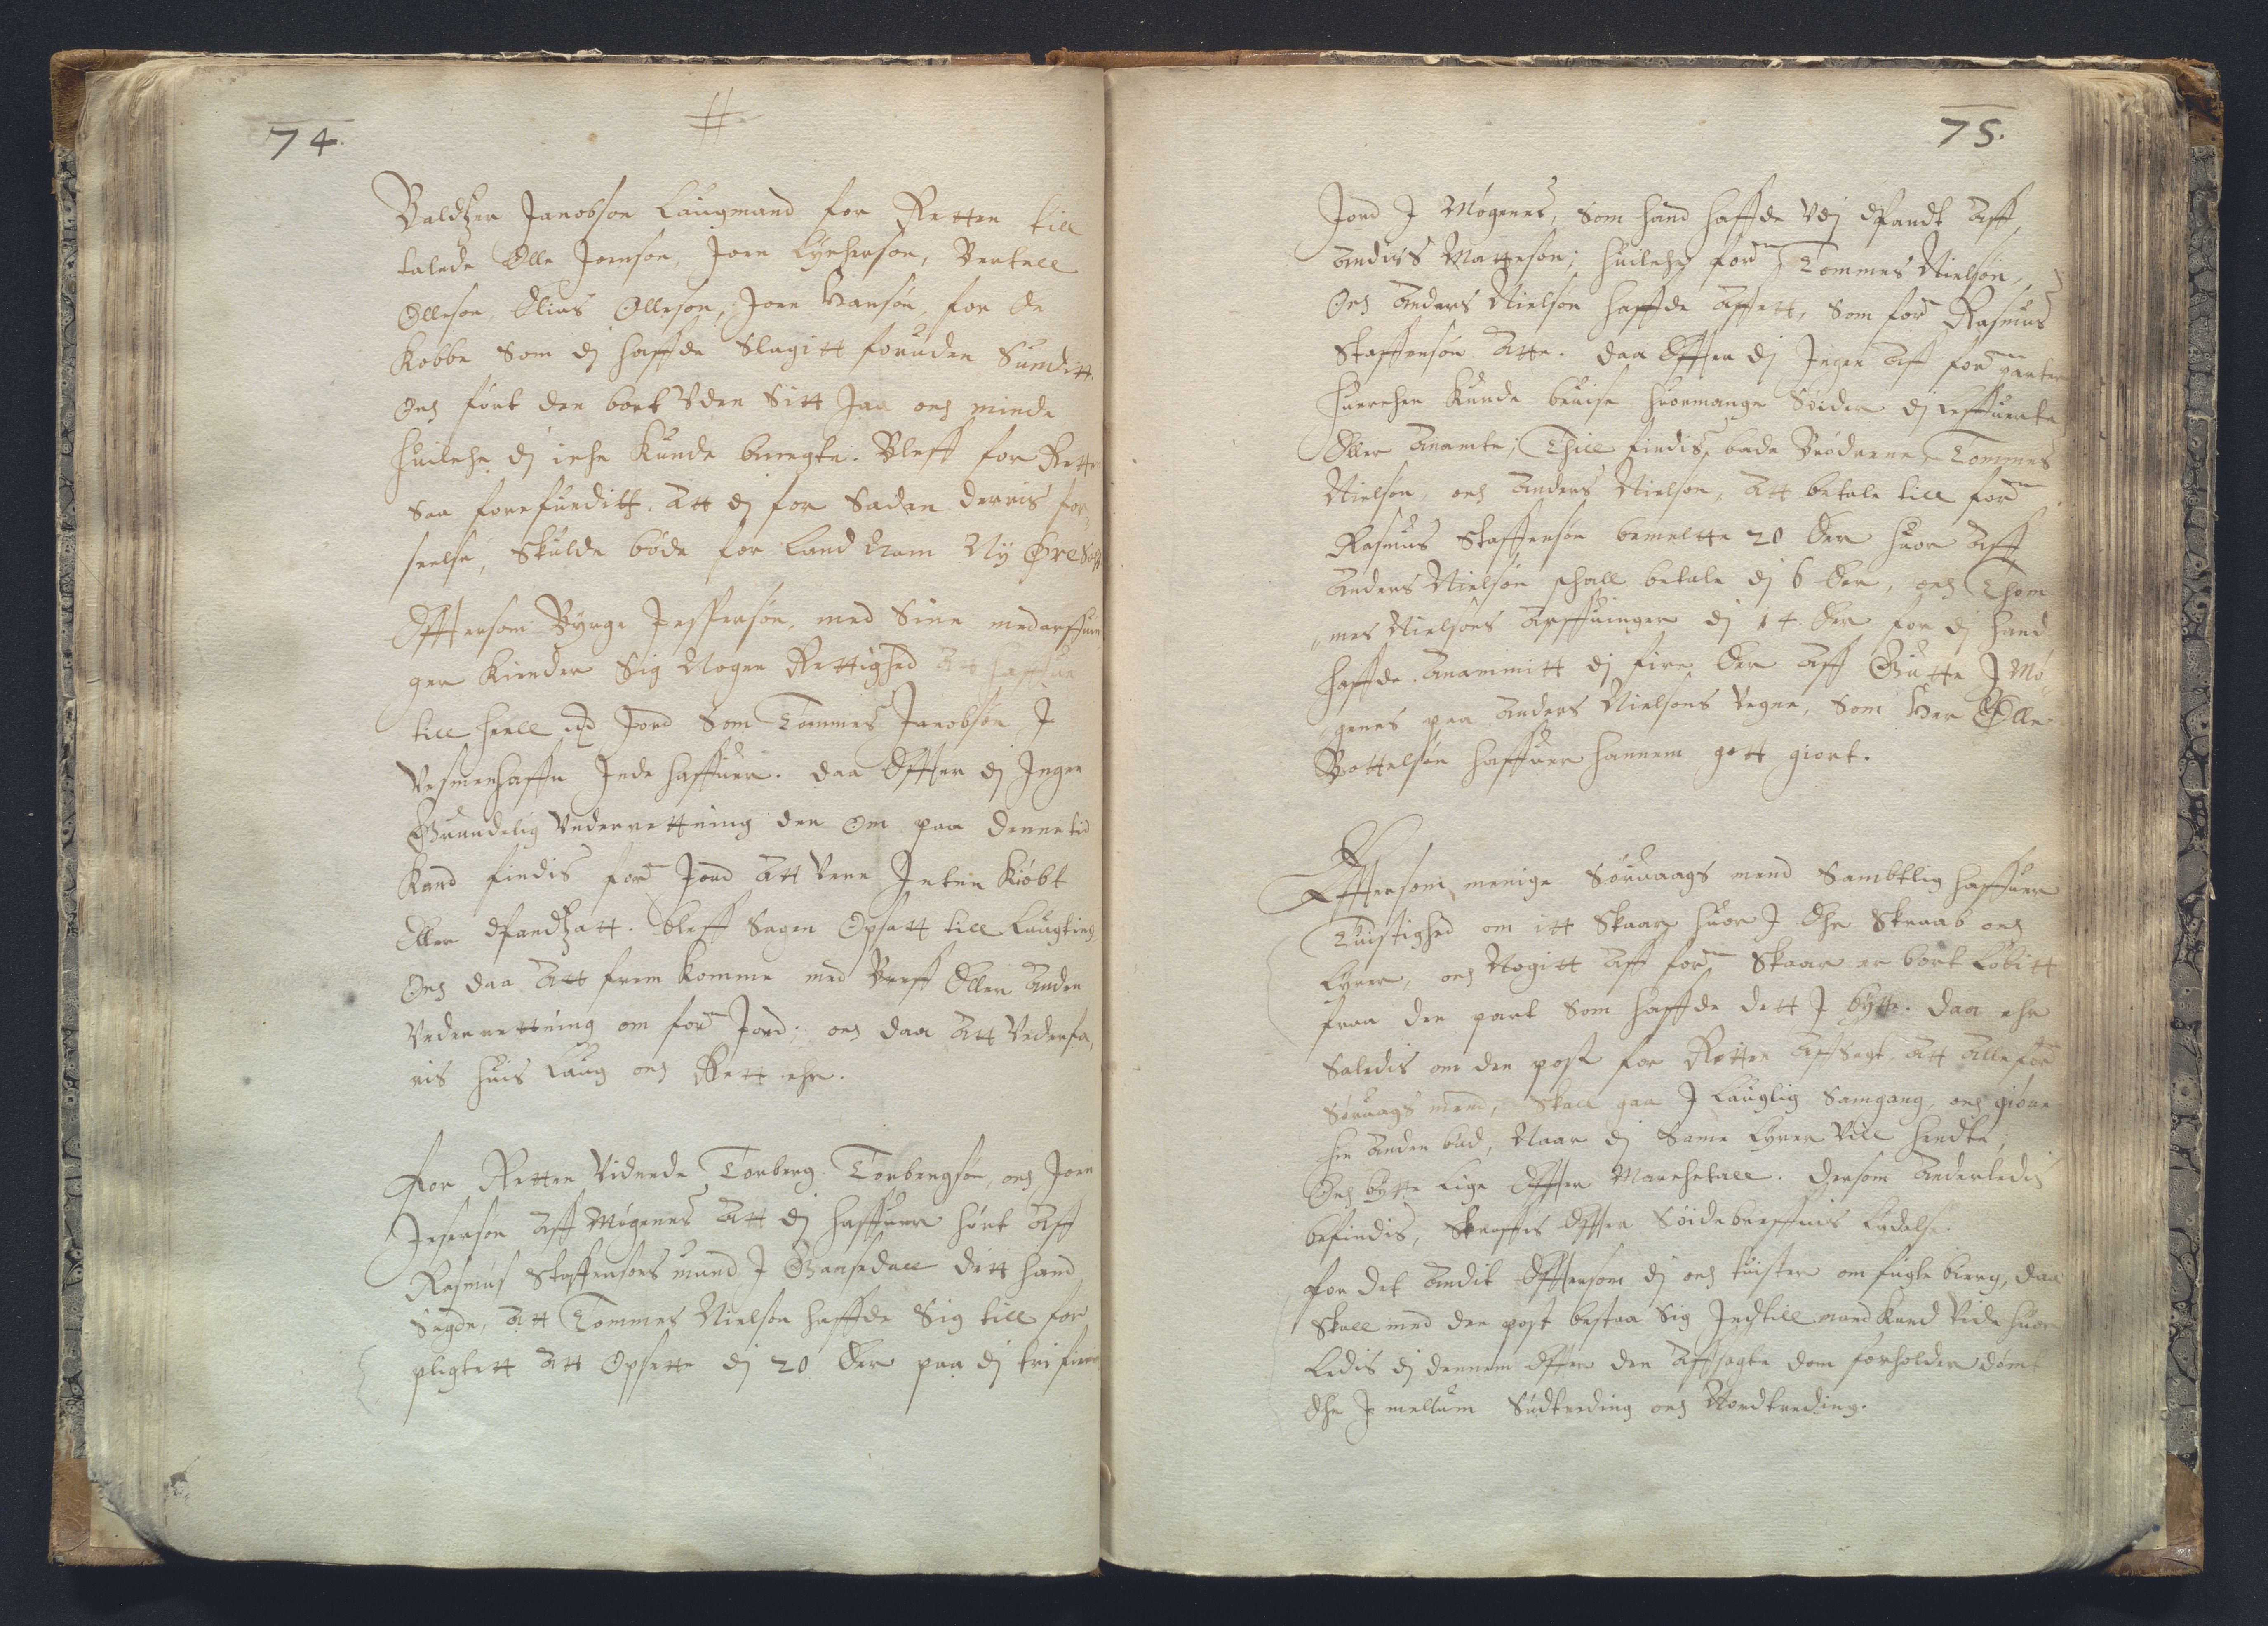 74.
Baldtzer Jacobson Laugmand for Retten till
talede Olle Joenson, Joen Lycherson, Bertell
Olleson, Elias Olleson, Joen Hanson, for de
Kobbe Som dj haffde Slagitt foruden Sunditt
Och fört den bort Uden Sitt Jaa och minde
huilche dj iche Kunde benegte. Bleff for Rette
Saa forefunditt. Att dj for Sadan derris for¬
seelse, Skulde böde for Landnam Ny Öre Sölff
Effttersom Byrge Jesperson, med Sine medarffuin
ger Kiender Sig Nogen Rettighed Att haffue
till heell Jord Som Tommes Jacobsön I
Vesmenhaffn Jnde haffuer. daa Effter dj Jngen
Grundelig Underrettning der Om paa denne tid
Kand findis forne Jord Att Vere Jnten Kiöbt
Eller Pandtzatt. bleff Sagen Opsatt till Laugting,
Och daa Att frem komme med Breff Eller Anden
Underrettning om forne Jord; och daa Att Vederfa,
ris huis Laug och Rett ehr.
For Retten Vidnede Torberg Torbergsön, och Joen
Jeserson Aff Mögenes Att dj haffuer hört Aff
Rasmus Staffensons mund J Gaasedall ditt hand
Sagde, Att Tommes Nielson haffde Sig till for
pligtett Att Opsette dj 20 Ver paa dj tri fierer
75.
Jord J Mögenes, Som hand haffde Udj Pandt Aff
Anders Matteson; huilche forne Tommes Nielsön,
Och Anders Nielson haffde Affett, Som forne Rasmus
Staffensön Atte. daa Effter dj Jngen Aff forne parter
huerchen Kunde beuise huormange Söider dj leffuerte
Eller Anamte; Thill findis bade Brödrene Tommes
Nielson, och Anders Nielson, Att betale till forne
Rasmus Staffensön bemeltte 20 Ver huor Aff
Anders Nielsön schall betale dj 6 Ver, och Thom
mes Nielsons Arffuinger dj 14. Ver for dj hand
haffde Anammitt dj fire Ver Aff Gutte J Mö¬
genes paa Anders Nielsons Vegne, Som Her Olle
Bottelsön haffuer hannem gott giort.
Effttersom menige Söruaags mend Sambtlig haffuer
Tuistighed om itt Skaar huor J Ehr Skraab och
Lyrer, och Nogitt Aff forne Skaar er bort Löbitt
fraa den part Som haffde dett J bytte. daa ehr
Saledis om den post for Retten Affsagt Att Alle forne
Söruags mend, Skall gaa J Lauglig Samgang, och giöre
hin Anden bud, Naar dj Same Lyrer Vill hendte;
Och bytte Lige Effter Marchetall. Dersom Anderledis
befindis, Straffis Effter Söidebreffuis Lydelse.
for det Andit Effttersom dj och tuister om fugle bierg, daa
Skall med den post bestaa Sig Jndtill mand Kand Vide huor
Ledis dj dennem Effter den Affsagte dom forholder dömt
Ehr J mellum Sudtreding och Nordtreding.